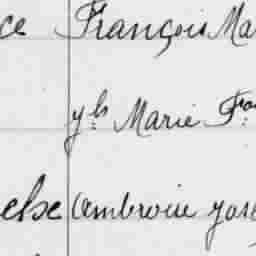 ce François Ma
y^ls Marie Fra
else Ambroise jose